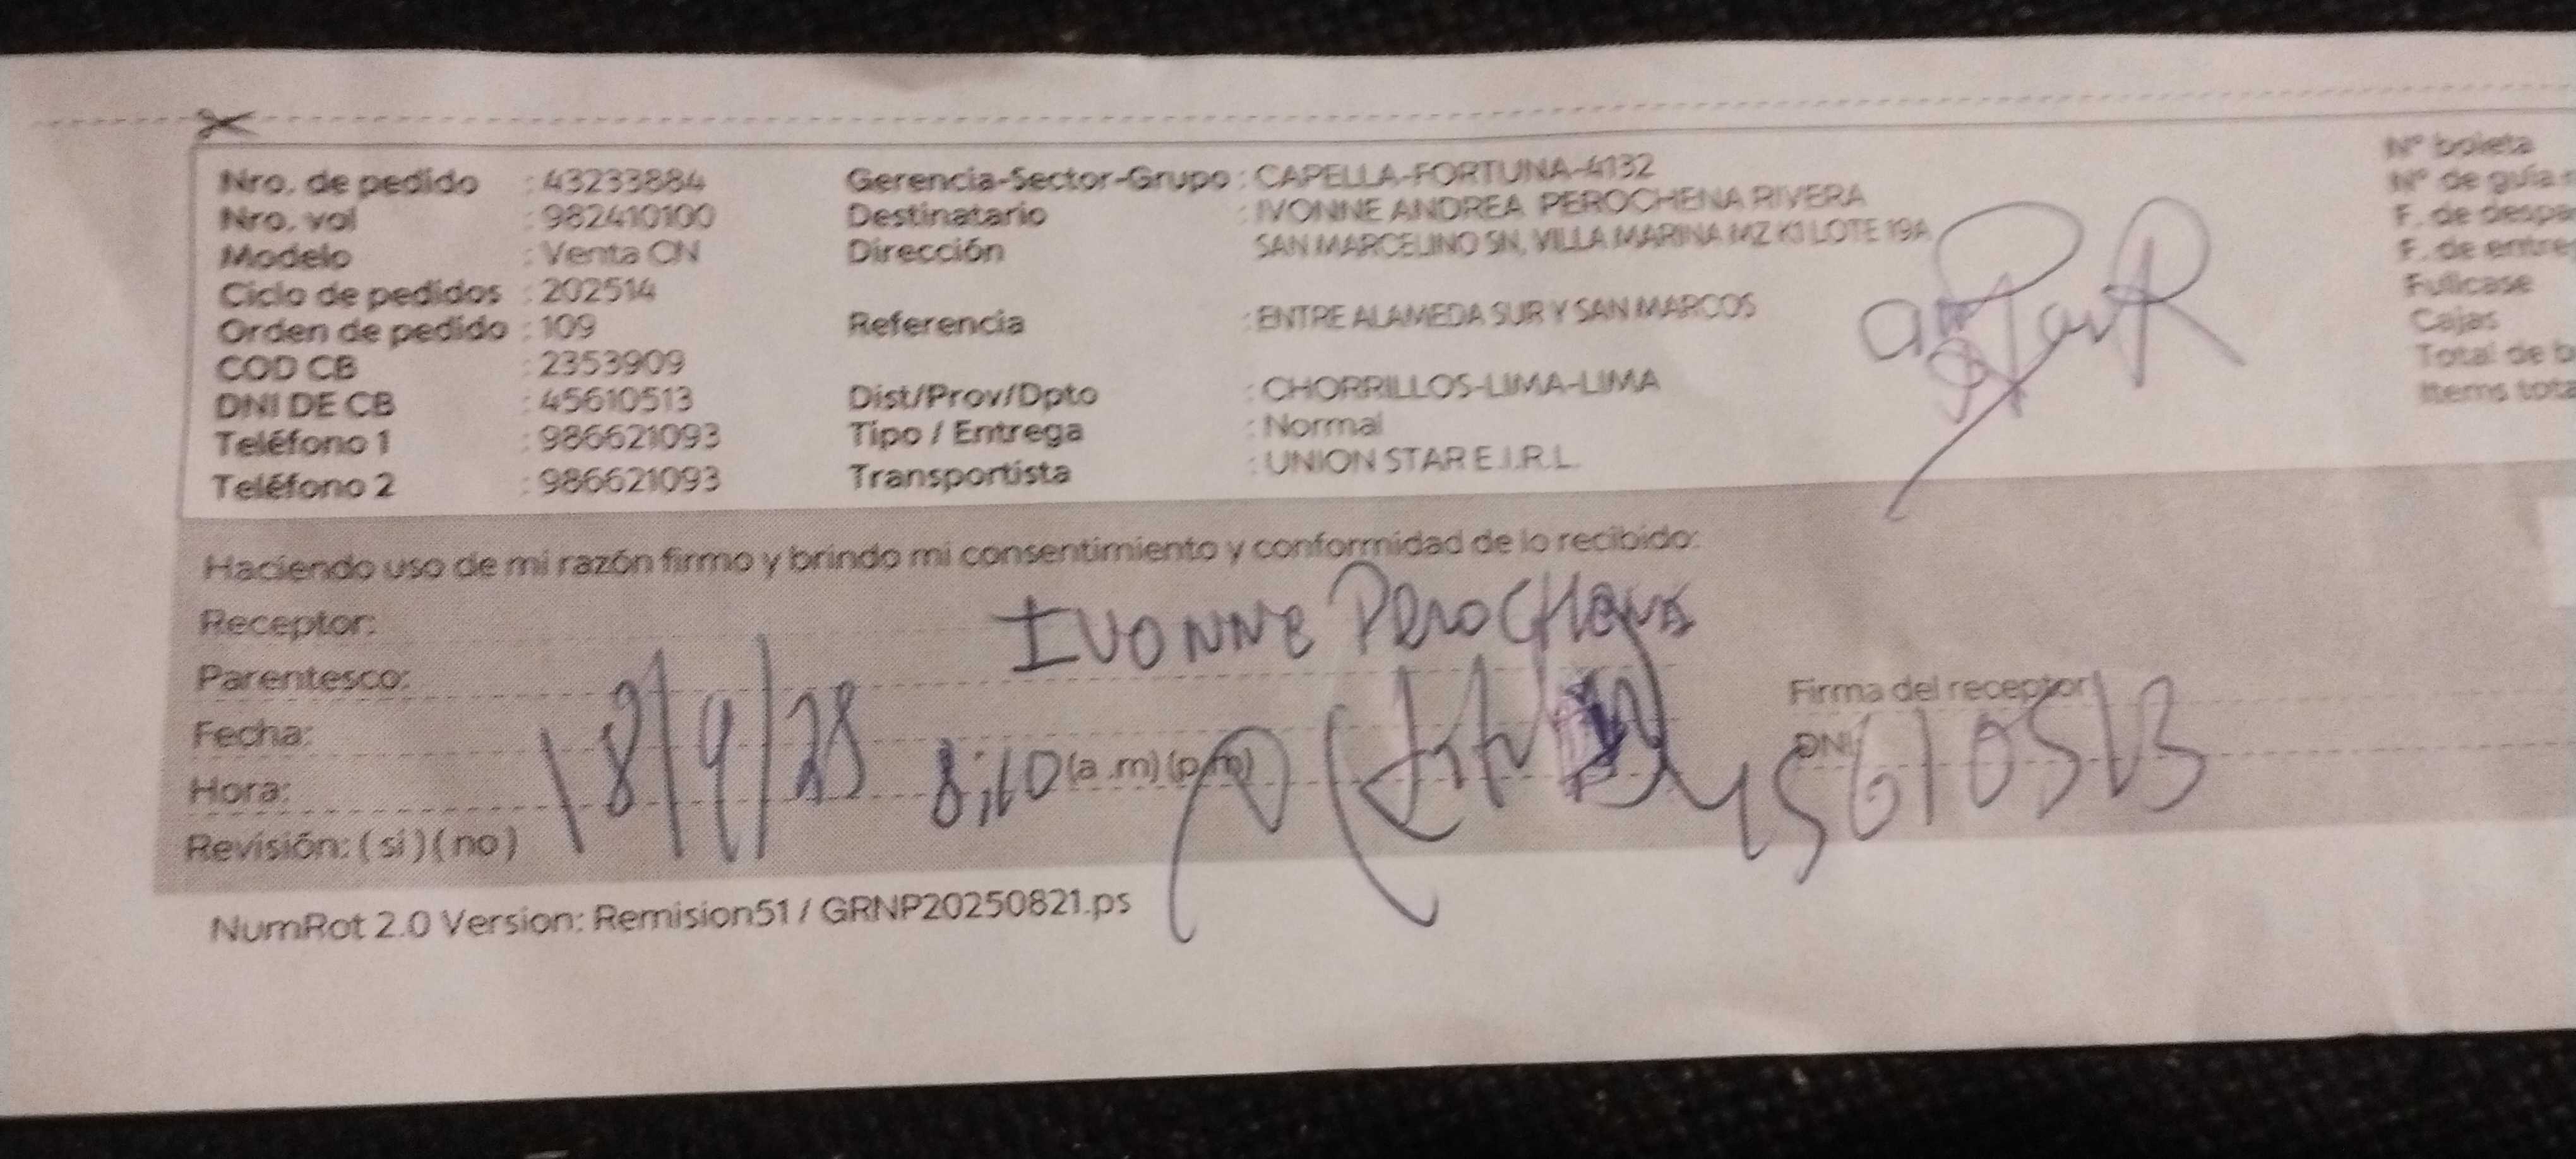 Nro. de pedido : 43233884 Gerencia-Sector-Grupo : CAPELLA-FORTUNA-4132 N° boleta
Nro. vol : 982410100 Destinatario : IVONNE ANDREA PEROCHENA RIVERA N° de guía
Modelo : Venta CN Dirección SAN MARCELINO SN, VILLA MARINA MZ K1 LOTE 19A F. de despa
Ciclo de pedidos : 202514 F. de entre
Orden de pedido : 109 Referencia : ENTRE ALAMEDA SUR Y SAN MARCOS Fullcase
COD CB : 2353909 Cajas
DNI DE CB : 45610513 Dist/Prov/Dpto : CHORRILLOS-LIMA-LIMA Total de b
Teléfono 1 : 986621093 Tipo / Entrega : Normal Items tota
Teléfono 2 : 986621093 Transportista : UNION STAR E.I.R.L.
Haciendo uso de mi razón firmo y brindo mi consentimiento y conformidad de lo recibido:
Receptor: IVONNE PEROCHENA
Parentesco: Firma del receptor
Fecha: 18/9/25 DNI 45610513
Hora: 8:10 (a .m) (p.m)
Revisión: ( si ) ( no )
NumRot 2.0 Version: Remision51 / GRNP20250821.ps